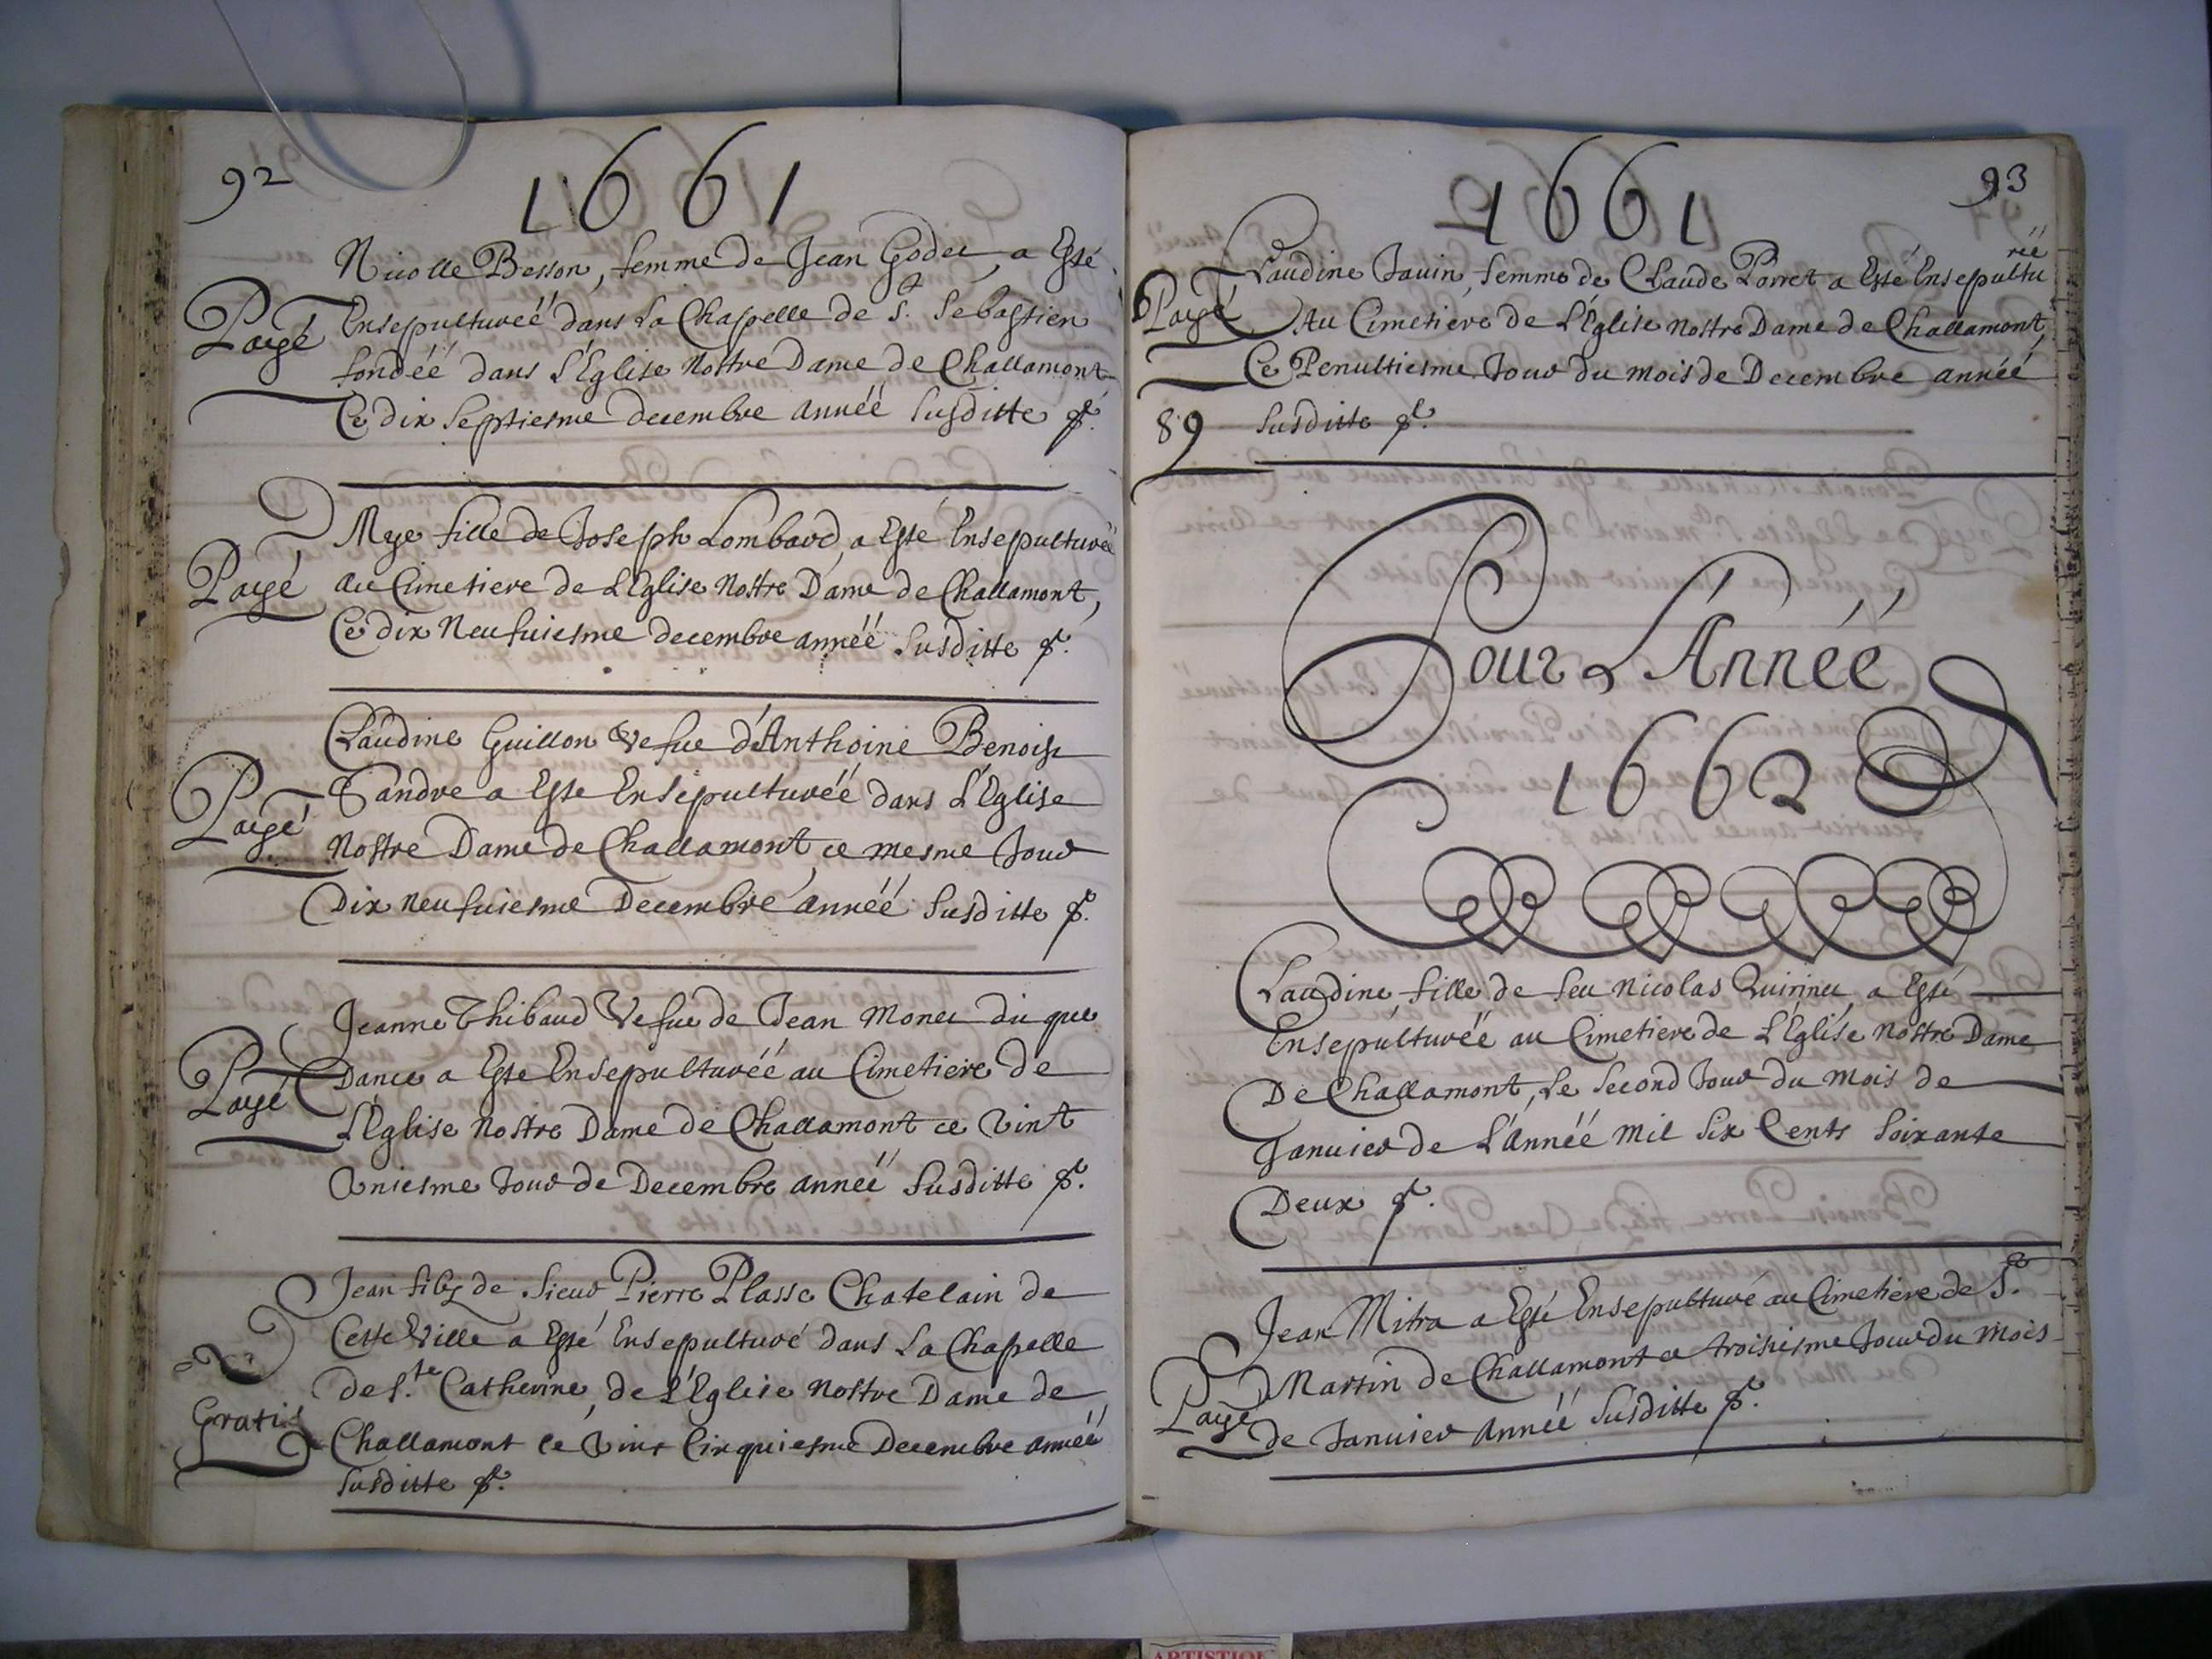 92
1661
Nicolle Besson, femme de Jean Godet, a Esté
Payé
Ensepulturéé dans La Chapelle de St. Sebastien
fondéé dans L'Eglise Nostre Dame de Challamont
Ce dix Septiesme decembre annéé Susditte
Mye fille de Joseph Lombard, a Esté Ensepulturéé
Payé
au Cimetiere de L'Eglise Nostre Dame de Challamont,
Ce dix Neufuiesme decembre annéé Susditte
Claudine Guillon Vefue d'Anthoine Benoist
Payé
Tandre a Esté Ensepulturéé dans L'Eglise
Nostre Dame de Challamont, ce mesme Jour
Dix neufuiesme Decembre annéé Susditte
Jeanne Thibaud Vefue de Jean Monet du que
Payé
Dance a Esté Ensepulturéé au Cimetiere de
L'Eglise Nostre Dame de Challamont ce Vint
Vniesme Jour de Decembre annéé Susditte
Jean filz de Sieur Pierre Plasse Chatelain de
Cette Ville a Esté Ensepulturé dans La Chapelle
de Ste. Catherine, de L'Eglise Nostre Dame de
Gratis
Challamont le Vint Cinquiesme Decembre annéé
Susditte
93
1661
Claudine Jauin, femme de Claude Porret a Esté Ensepultu
réé
Payé
Au Cimetiere de L'Eglise Nostre Dame de Challamont,
Ce Penultiesme Jour du mois de Decembre annéé
89
Susditte
Pour L'Annéé
1662
Claudine fille de feu Nicolas Quirinet, a Esté
Ensepulturéé au Cimetiere de L'Eglise Nostre Dame
De Challamont, Le Second Jour du Mois de
Januier de L'Annéé Mil Six Cents Soixante
Deux
Jean Mitra a Esté Ensepulturé au Cimetiere de St.
Martin de Challamont ce troisiesme Jour du Mois
Payé
de Januier Annéé Susditte